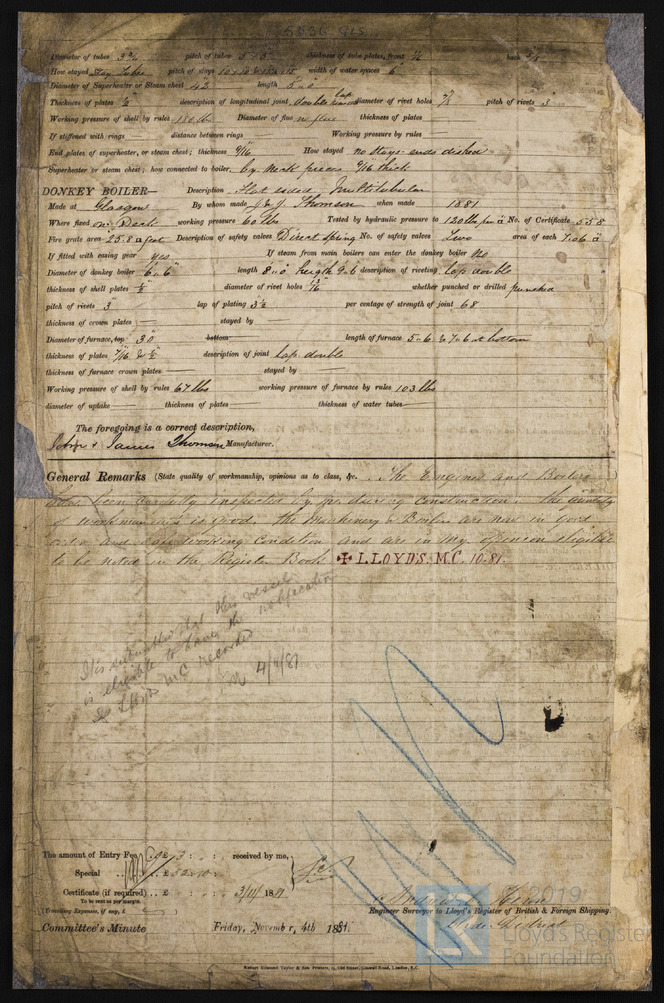 5536 GLS
Diameter of tubes 3¾ pitch of tubes 5 x 5 thickness of tube plates, front ½ back ⅝
How stayed Stay tubes pitch of stays width of water spaces 6"
Diameter of Superheater or Steam chest 42" length 5"0
Thickness of plates ½ description of longitudinal joint, double lap diameter of rivet holes ⅞ pitch of rivets 3
Working pressure of shell by rules 180 lb Diameter of flue no flue thickness of plates
If stiffened with rings distance between rings Working pressure by rules
End plates of superheater, or steam chest; thickness 9/16 How stayed no stays ends dished
Superheater or steam chest; how connected to boiler. by Neck pieces 9/16 thick
DONKEY BOILER— Description. Flat sided, Multitubular
Made at Glasgow By whom made J. & J. Thomson when made 1881
Where fixed on Deck working pressure 60 lbs Tested by hydraulic pressure to 120 lbs per No. of Certificate 558
Fire grate area 25.8 feet Description of safety valves Direct Spring No. of safety valves Two area of each 7.06
If fitted with easing gear yes If steam from main boilers can enter the donkey boiler No
Diameter of donkey boiler 6"6 length 8"0 height 9"6 description of riveting. lap double
thickness of shell plates ½ diameter of rivet holes whether punched or drilled punched
pitch of rivets 3 lap of plating 3½ per centage of strength of joint 68
thickness of crown plates stayed by
Diameter of furnace, top 30 bottom length of furnace 5"6 & 7"6 at bottom
thickness of plates 7/16 & ½ description of joint lap double
thickness of furnace crown plates stayed by
Working pressure of shell by rules 67 lbs working pressure of furnace by rules 103 lbs
diameter of uptake thickness of plates thickness of water tubes
The foregoing is a correct description,
John & James Thomson Manufacturer.
General Remarks (State quality of workmanship, opinions as to class, &c. The Engines and Boilers
have been carefully inspected by me during construction. The quality
of workmanship is good. The Machinery & Boilers are now in good
order and safe working Condition and are in my opinion eligible
to be noted in the Register Book ✠ LLOYD'S. M.C. 10.81.
It is submitted that this vessel
is eligible to have the notification
Lloyds MC recorded
4/11/81
The amount of Entry Fee .. £ 3 : : received by me,
Special .. £ 32 : 10 :
Certificate (if required) .. £ : : 3/11/ 1881
To be sent as per margin.
(Travelling Expenses, if any, £ )
Engineer Surveyor to Lloyd's Register of British & Foreign Shipping.
Clyde District
Committee's Minute Friday, November, 4th 1881.
Robert Edmund Taylor & Son Printers, 19, Old Street, Goswell Road, London, E.C.
© 2019
Lloyd's Register
Foundation